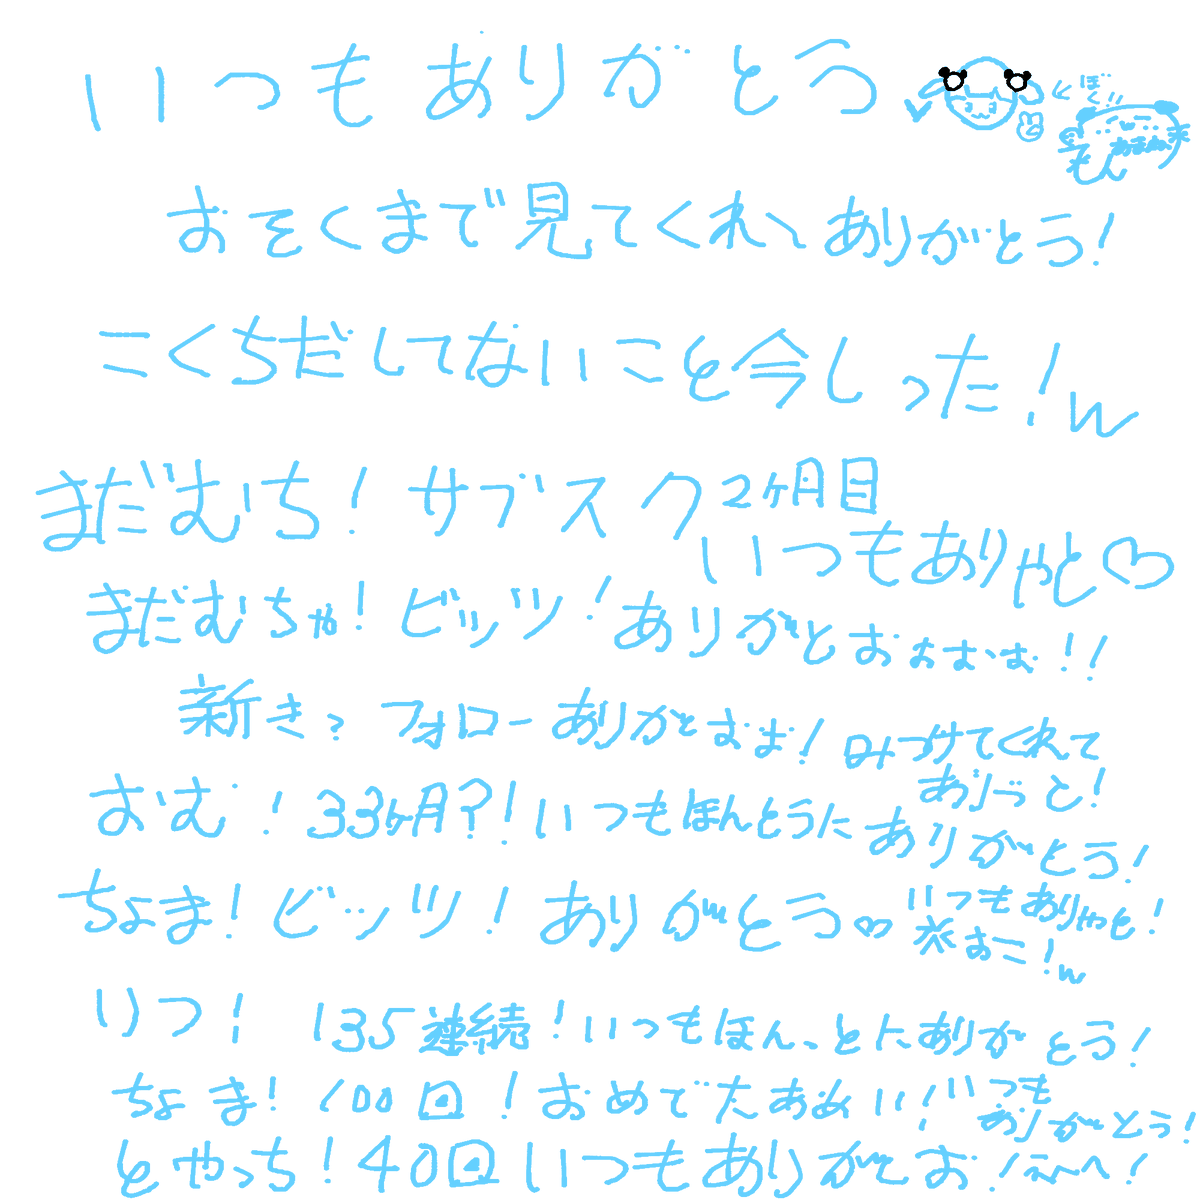 いつもありがとう
ぼく!!
もん
おそくまで見てくれてありがとう!
こくちだしてないこと今しった!w
まだむち!サブスク2ヶ月目
いつもありやと♡
まだむちゃ!ビッツ!ありがとおおおお!!
新き?フォローありがとおお!みつけてくれて
ありがっと!
おむ!33ヶ月?!いつもほんとうにありがとう!
ちょま!ビッツ!ありがとう♡いつもありやと!
米おこ!w
りつ!135連続!いつもほんっとにありがとう!
ちょま!100回!おめでたああい!いつも
ありがとう!
とやっち!40回いつもありがとお!